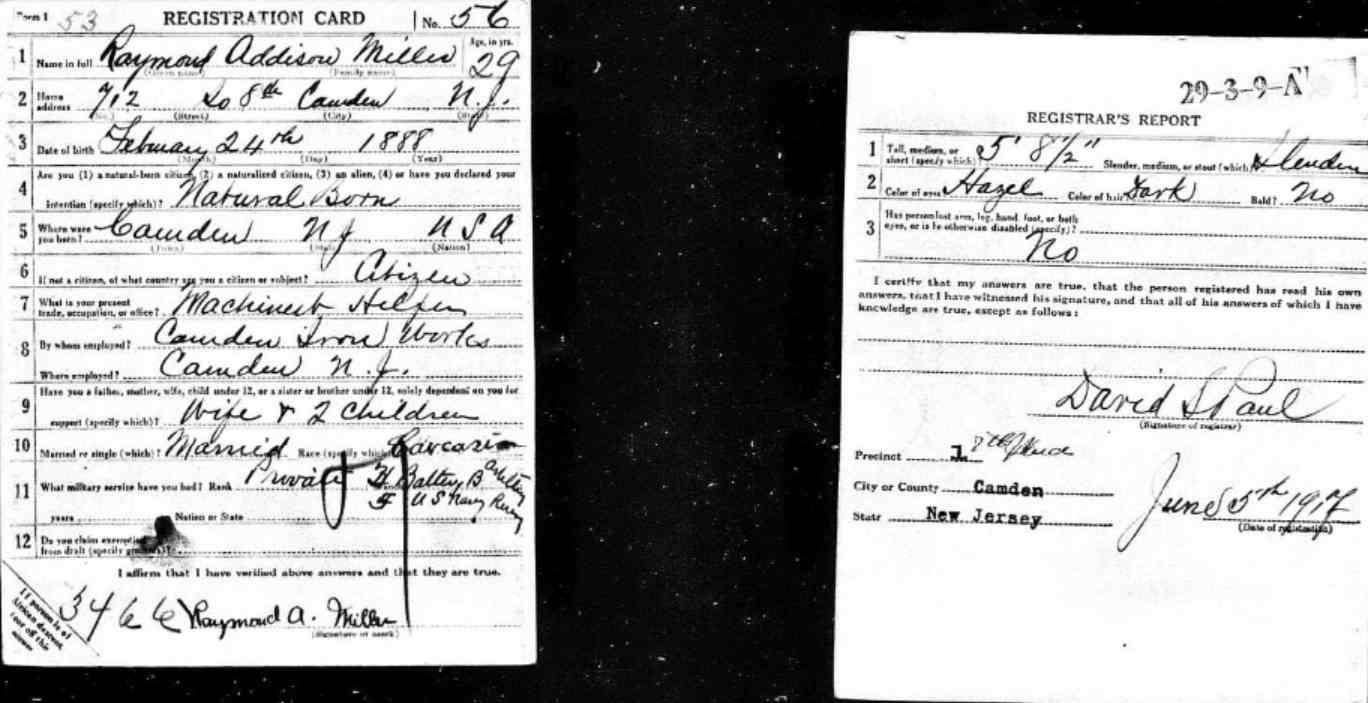 Form 1 53 REGISTRATION CARD No. 56
1 Name in full Raymond Addison Miller Age, in yrs. 29
(Given name) (Family name)
2 Home address 712 So 8th Camden N.J.
(No.) (Street) (City) (State)
3 Date of birth February 24th 1888
(Month) (Day) (Year)
4 Are you (1) a natural-born citizen, (2) a naturalized citizen, (3) an alien, (4) or have you declared your
intention (specify which)? Natural Born
5 Where were you born? Camden NJ USA
(Town) (State) (Nation)
6 If not a citizen, of what country are you a citizen or subject? Citizen
7 What is your present trade, occupation, or office? Machinest Helper
8 By whom employed? Camden Iron Works
Where employed? Camden N.J.
9 Have you a father, mother, wife, child under 12, or a sister or brother under 12, solely dependent on you for
support (specify which)? Wife & 2 Children
10 Married or single (which)? Married Race (specify which)? Caucasian
11 What military service have you had? Rank Private Battery B Artillery
U S Navy
years Nation or State
12 Do you claim exemption from draft (specify grounds)?
I affirm that I have verified above answers and that they are true.
3466 Raymond A. Miller
(Signature or mark)
If person is of
African descent,
tear off this
corner
29-3-9-A
REGISTRAR'S REPORT
1 Tall, medium, or short (specify which)? 5' 8½" Slender, medium, or stout (which)? Slender
2 Color of eyes Hazel Color of hair Dark Bald? No
3 Has person lost arm, leg, hand, foot, or both
eyes, or is he otherwise disabled (specify)?
No
I certify that my answers are true, that the person registered has read his own
answers, that I have witnessed his signature, and that all of his answers of which I have
knowledge are true, except as follows:
David S Paul
(Signature of registrar)
Precinct 1 7th Ward
City or County Camden
State New Jersey
June 5th 1917
(Date of registration)